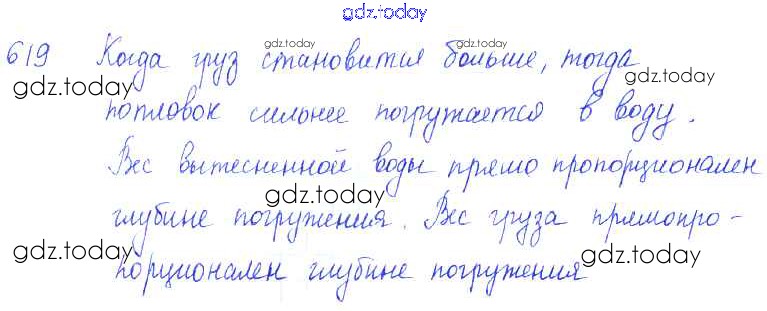 gdz.today
619 Когда груз становится больше, тогда
gdz.today gdz.today gdz.today
поплавок сильнее погружается в воду.
Вес вытесненной воды прямо пропорционален
gdz.today gdz.today
глубине погружения. Вес груза прямопро-
gdz.today gdz.today gdz.today
порционален глубине погружения